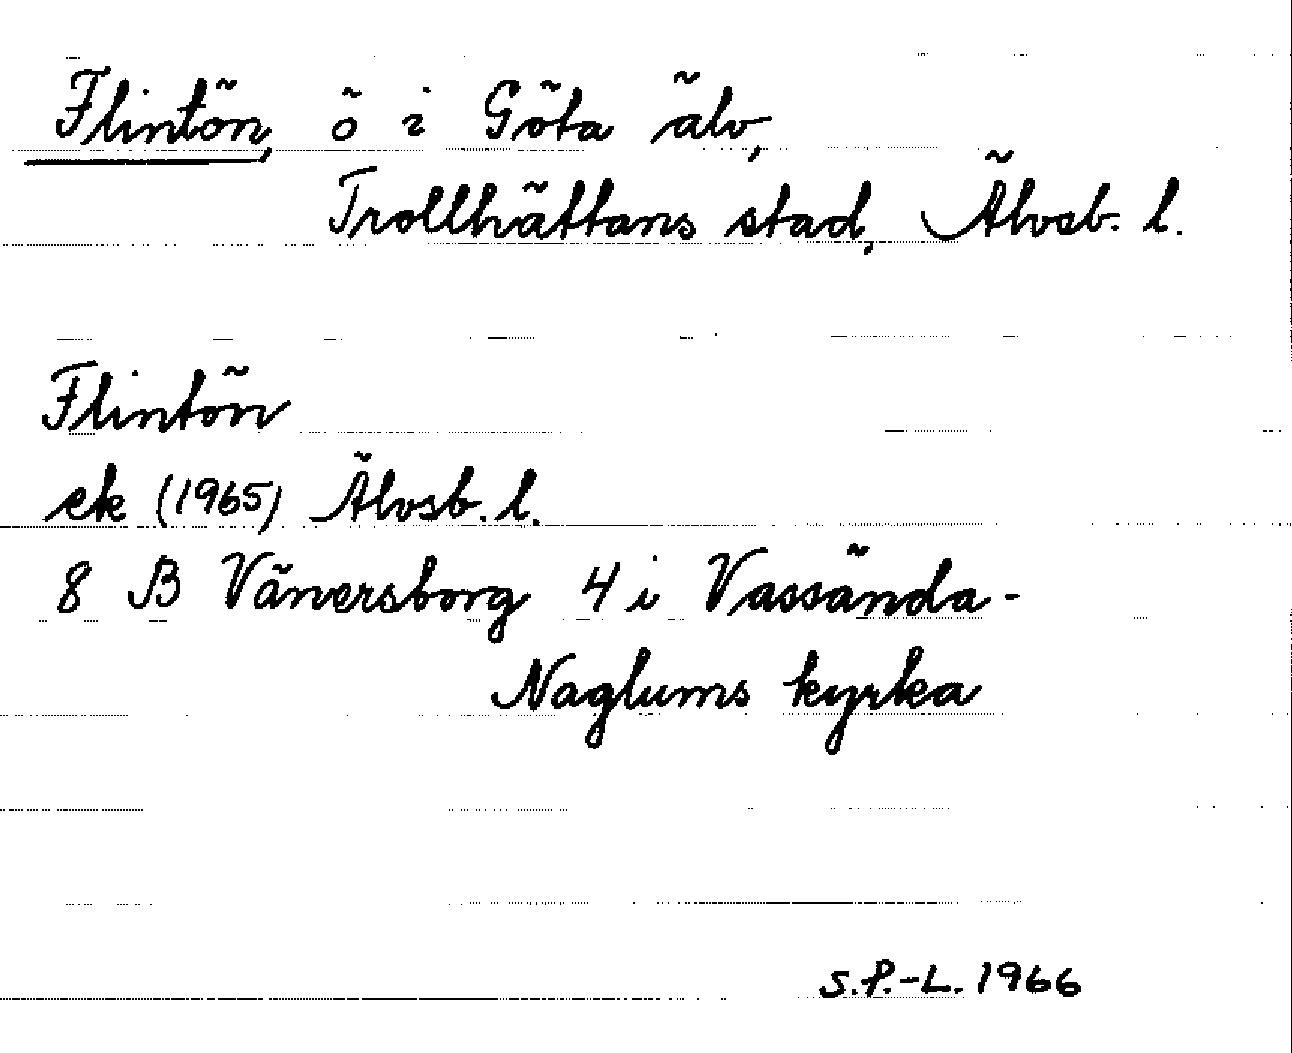 Flintön, ö i Göta älv,
Trollhättans stad, Älvsb. l.
Flintön
ek (1965) Älvsb. l.
8 B Vänersborg 4 i Vassända-
Naglums kyrka
S.P.-L. 1966